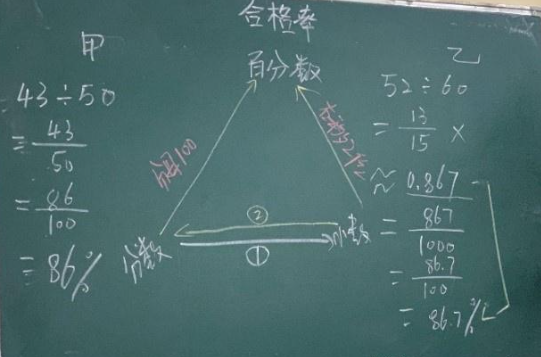 合格率
百分数
甲
43÷50
= 43/50
= 86/100
= 86%
分母100
② 
①
分数
小数
乙
52÷60
= 13/15 ×
≈ 0.867
= 867/1000
= 86.7/100
= 86.7%